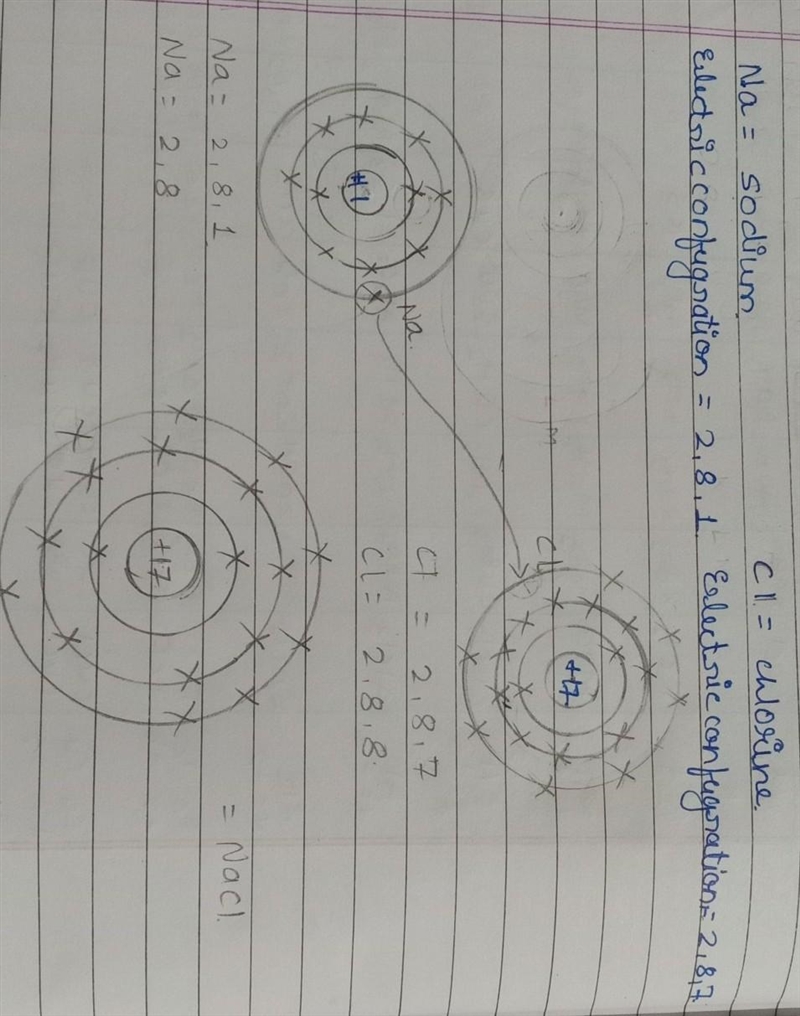 Na = sodium    Cl = chlorine.
Eelectric confugration = 2,8,1    Eelectric confugration = 2,8,7
Cl
+17
Na.
+11
Cl = 2,8,7
Cl = 2,8,8.
Na = 2,8,1
Na = 2,8
+17
= NaCl.